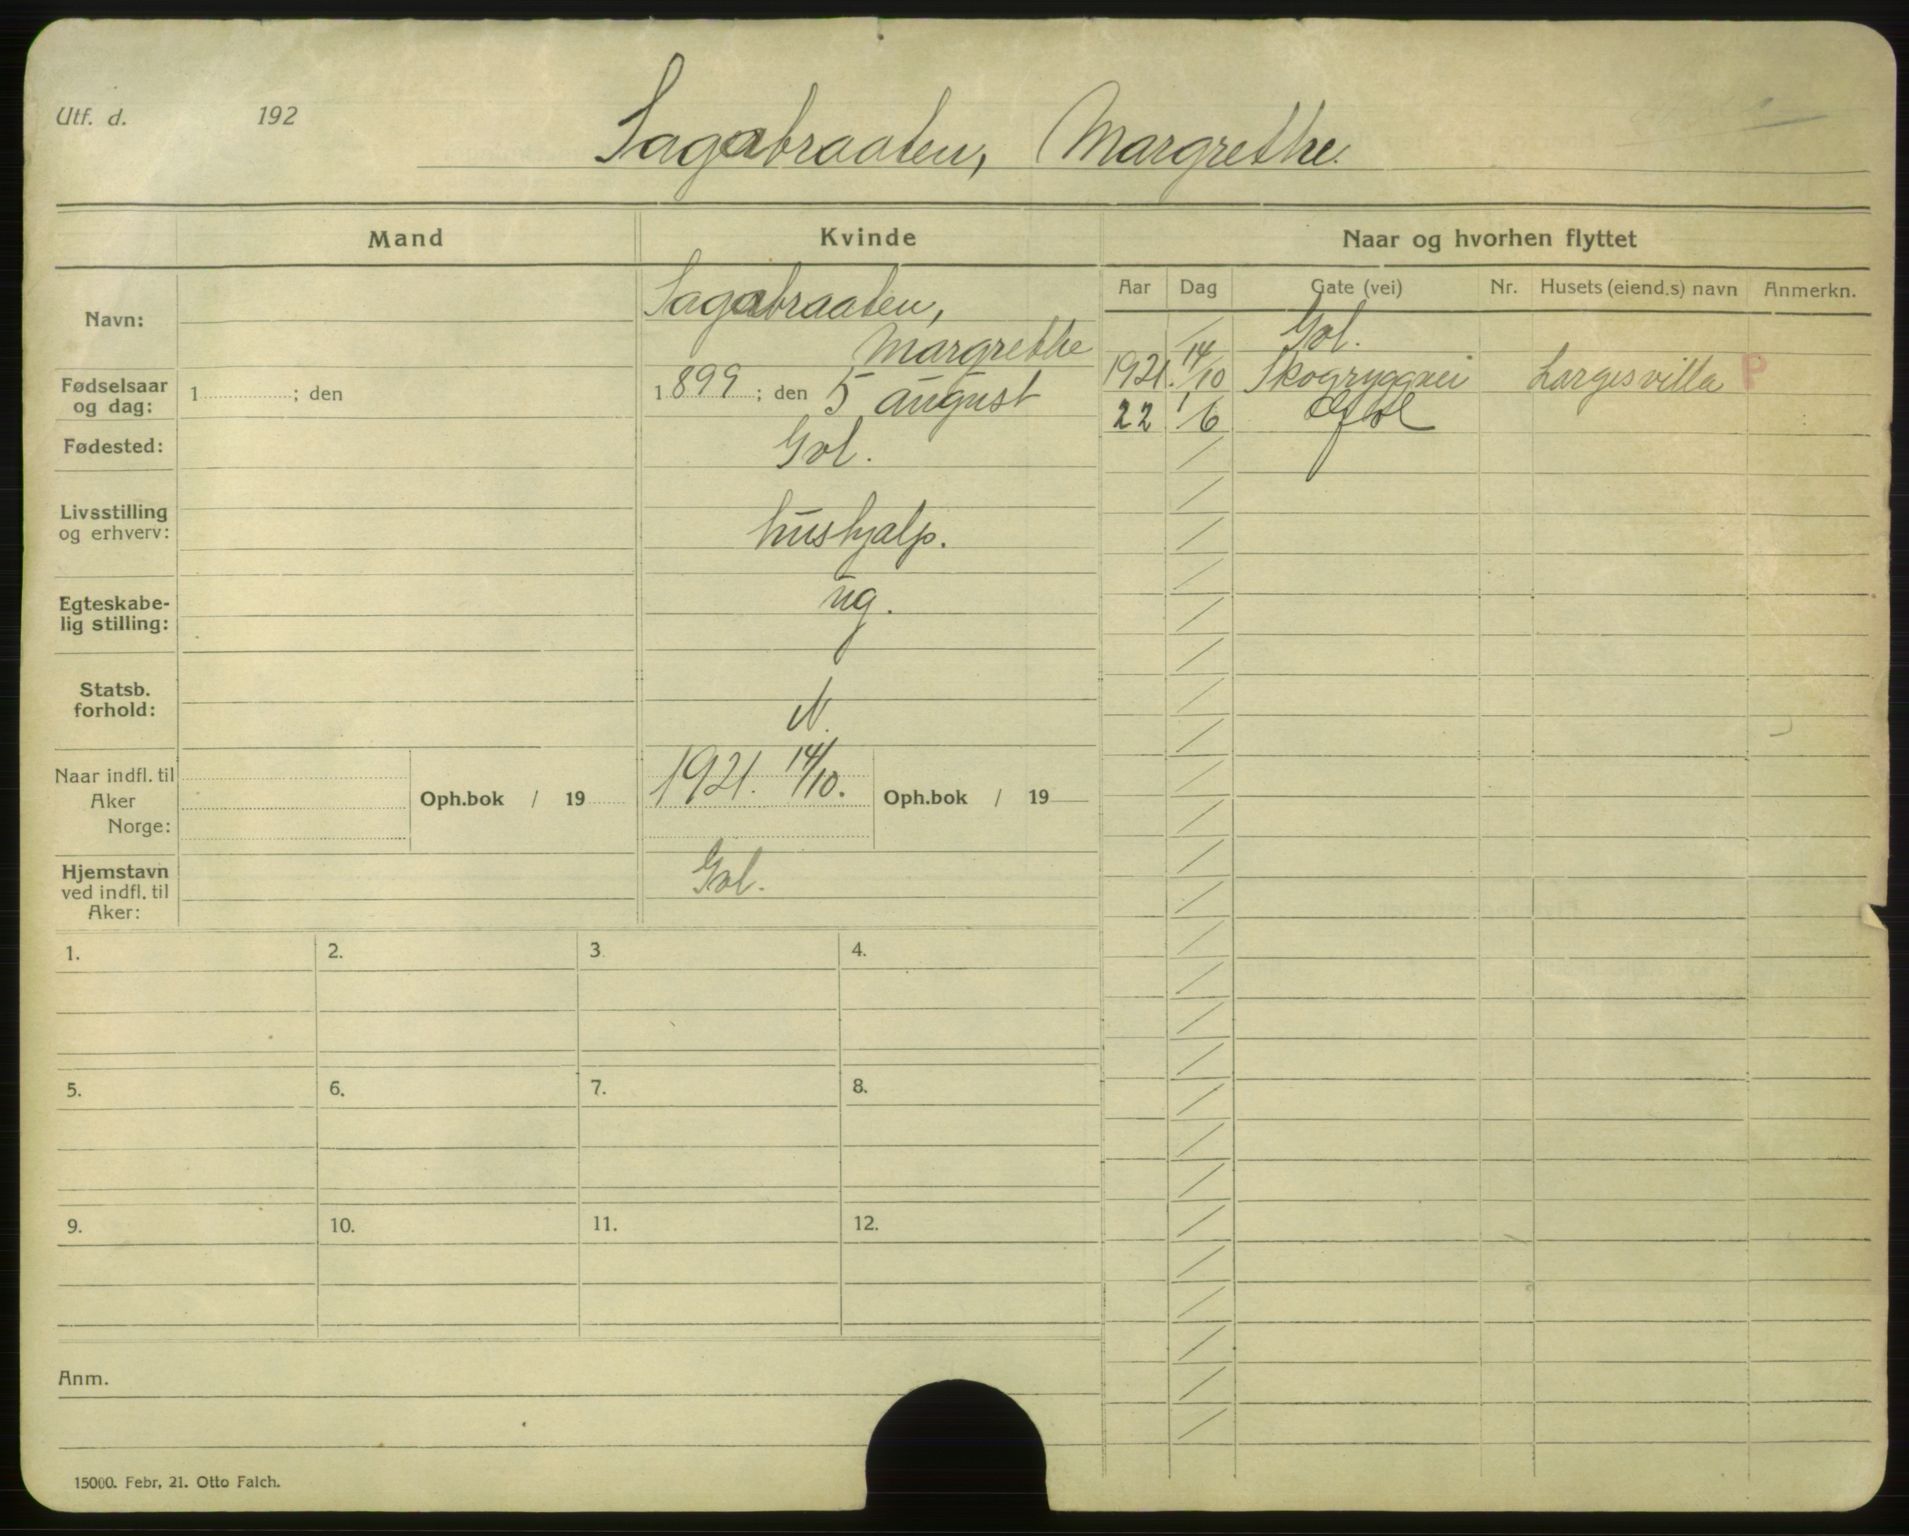 Utf. d. 192
Sagabraaten, Margrethe.
Mand Kvinde Naar og hvorhen flyttet
Aar Dag Gate (vei) Nr. Husets (eiend.s) navn Anmerkn.
Navn: Sagabraaten,
Margrethe
Fødselsaar
og dag: 1 ; den 1899 ; den 5 august
Fødested: Gol.
Livsstilling
og erhverv: hushjalp.
Egteskabe-
lig stilling: ug.
Statsb.
forhold: N.
Naar indfl. til
Aker
Norge: Oph.bok / 19 1921. 14/10. Oph.bok / 19
Hjemstavn
ved indfl. til
Aker: Gol.
/ Gol.
1921. 14/10 Skogryggvei Largisvilla P
22 1/6 Gol
1. 2. 3. 4.
5. 6. 7. 8.
9. 10. 11. 12.
Anm.
15000. Febr, 21. Otto Falch.